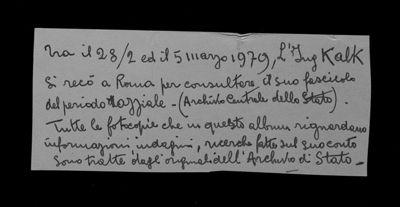 Tra il 28/2 ed il 5 marzo 1979, L'Ing Kalk
si recò a Roma per consultare il suo fascicolo
del periodo Nazziale - (Archivio Centrale dello Stato).
Tutte le fotocopie che in questo album riguardano
informazioni, indagini, ricerche fatte sul suo conto
sono tratte dagli originali dell'Archivio di Stato -